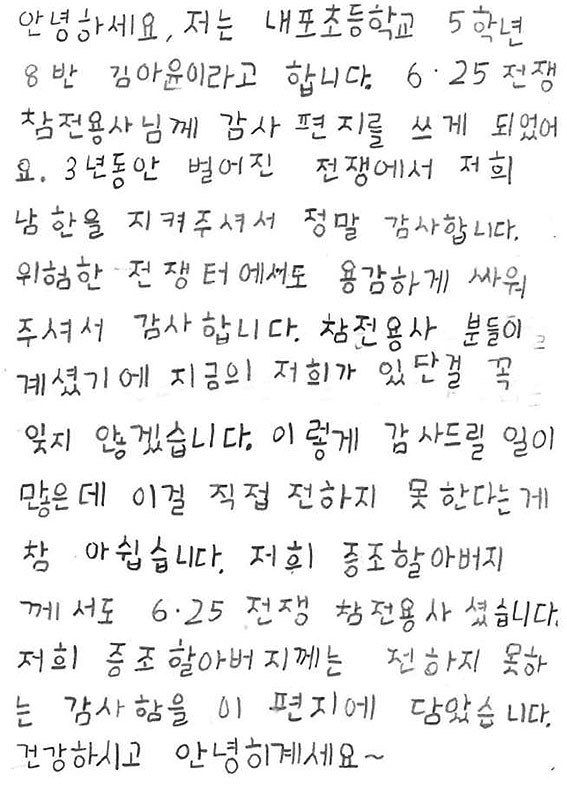 안녕하세요, 저는 내포초등학교 5학년
8반 김아윤이라고 합니다. 6·25 전쟁
참전용사님께 감사 편지를 쓰게 되었어
요. 3년동안 벌어진 전쟁에서 저희
남한을 지켜주셔서 정말 감사합니다.
위험한 전쟁터에서도 용감하게 싸워
주셔서 감사합니다. 참전용사 분들이
계셨기에 지금의 저희가 있단걸 꼭
잊지 않겠습니다. 이렇게 감사드릴 일이
많은데 이걸 직접 전하지 못한다는게
참 아쉽습니다. 저희 증조할아버지
께서도 6·25 전쟁 참전용사 셨습니다.
저희 증조할아버지께는 전하지 못하
는 감사함을 이 편지에 담았습니다.
건강하시고 안녕히계세요~